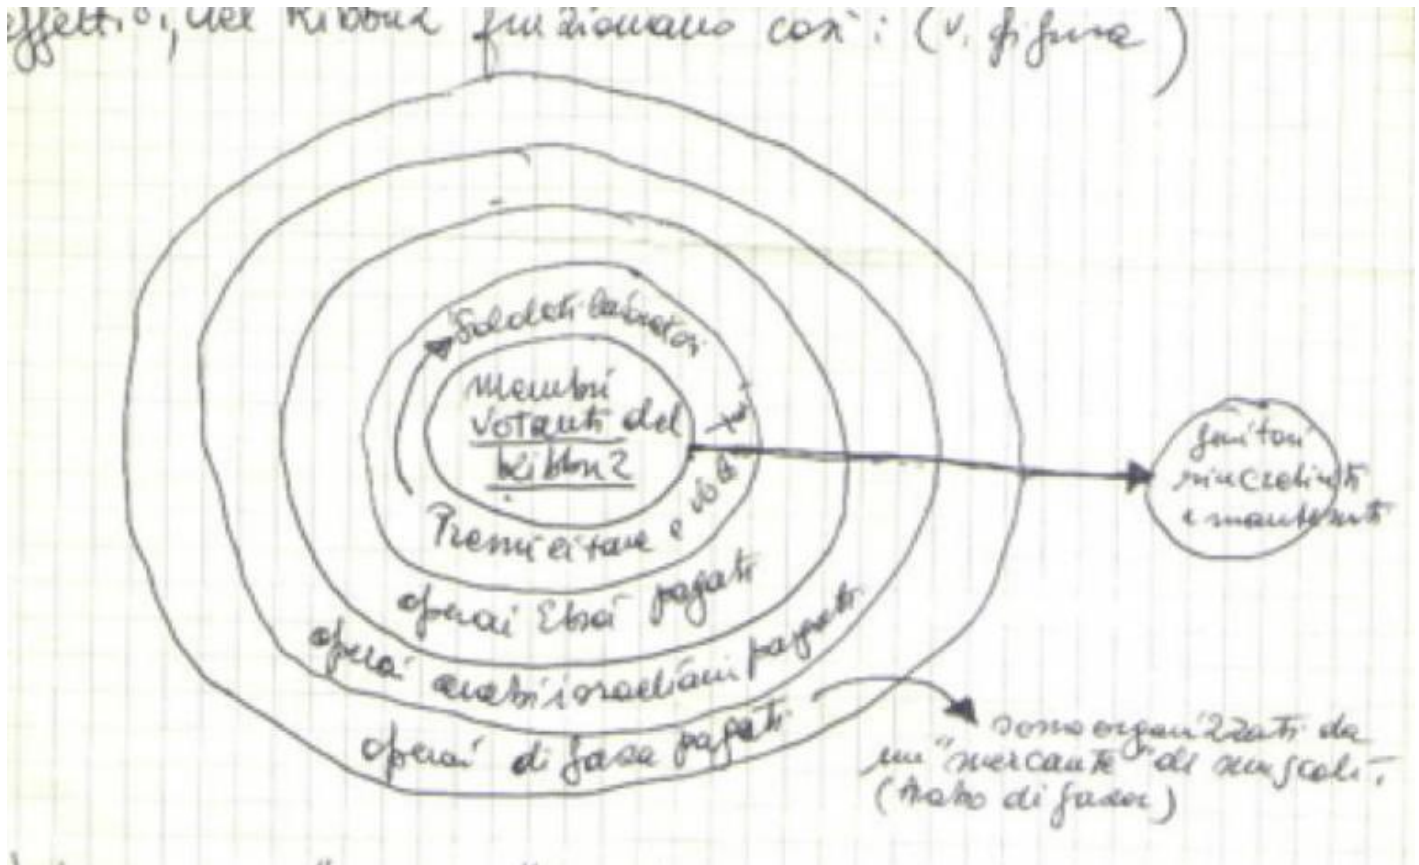 effetti, nel Kibbuz funzionano così: (v. figura)
Soldati lavoratori
Membri
votanti del
Kibbuz
operai Ebrei pagati
operai arabi israeliani pagati
operai di Gaza pagati
genitori
rincretiniti
e mantenuti
sono organizzati da
un "mercante" di muscoli.
(Arabo di Gaza)